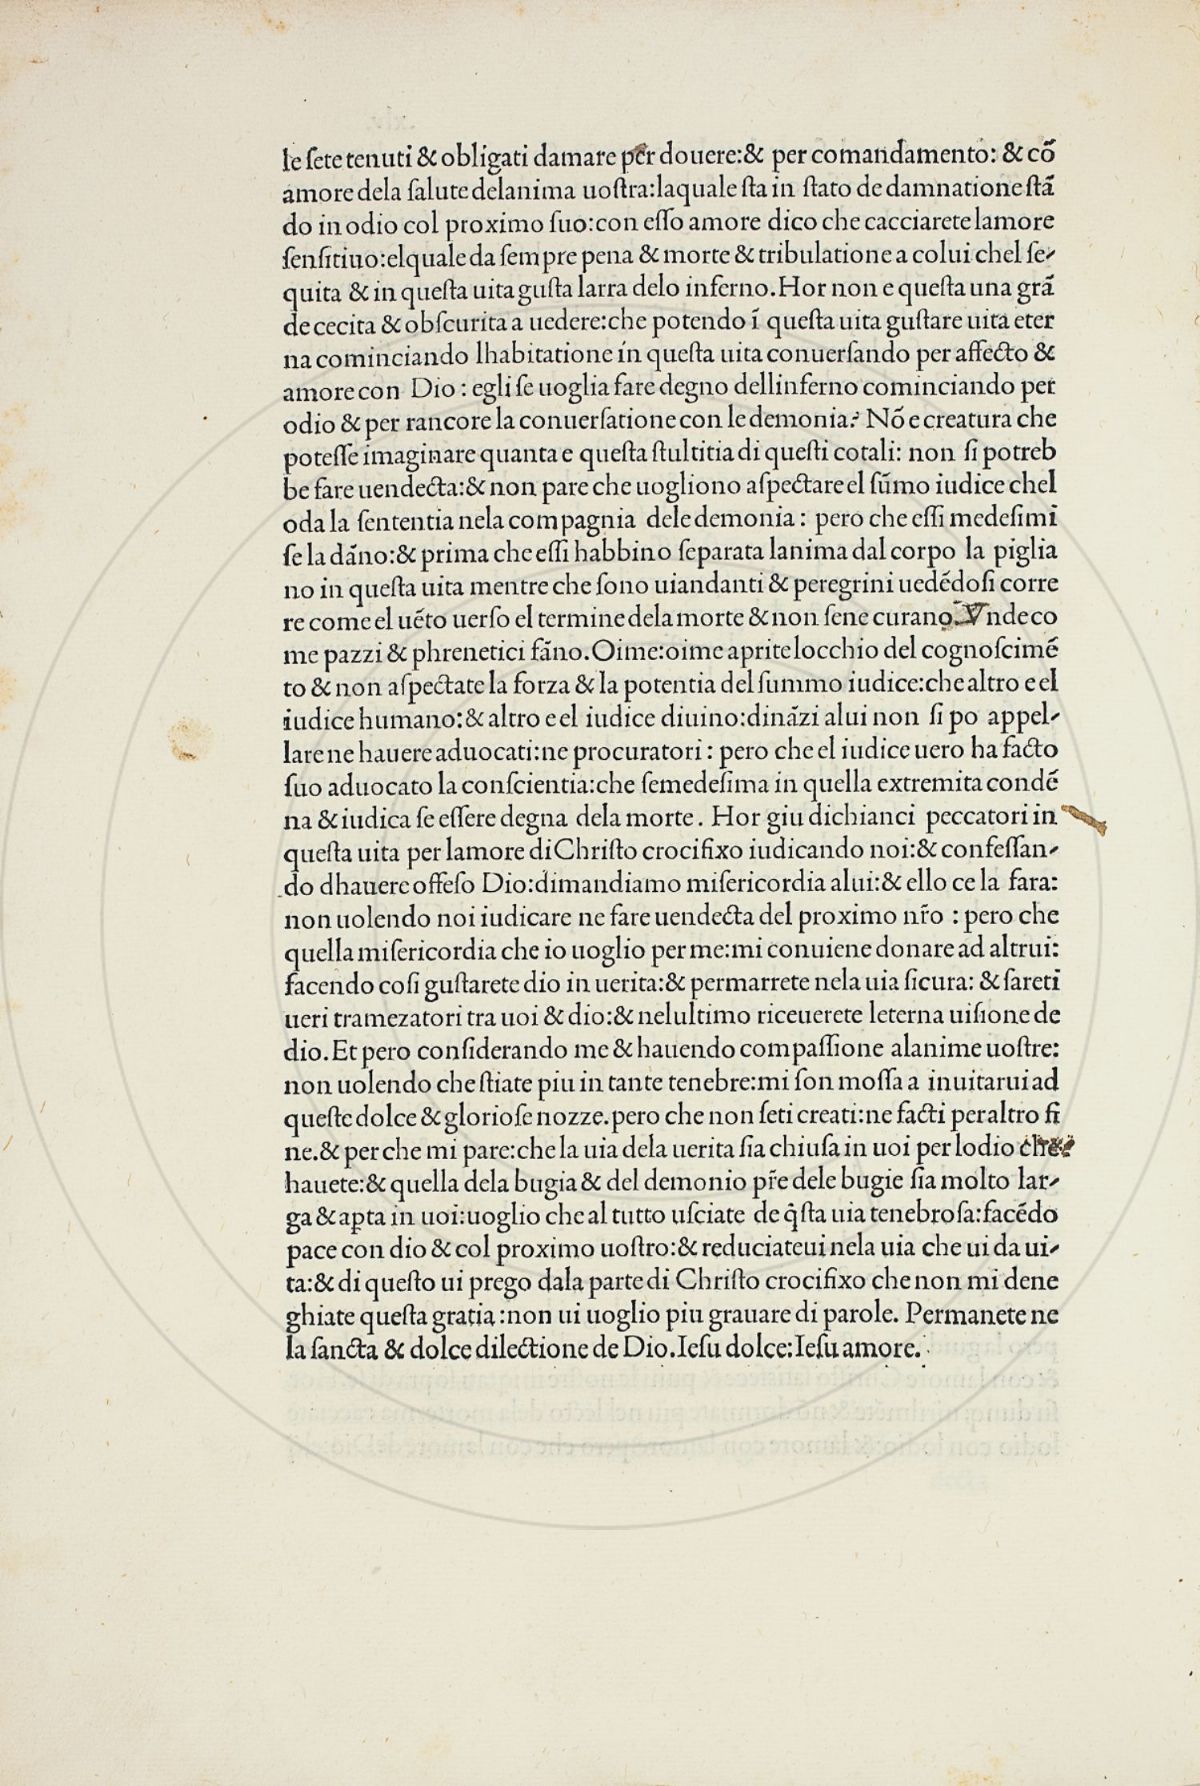 le ſete tenuti & obligati damare per douere:& per comandamento: & cõ
amore dela ſalute delanima uoſtra:laquale ſta in ſtato de damnatione ſtã
do in odio col proximo ſuo:con eſſo amore dico che cacciarete lamore
ſenſitiuo:elquale da ſempre pena & morte & tribulatione a colui chel ſe-
quita & in queſta uita guſta larra delo inferno.Hor non e queſta una grã
de cecita & obſcurita a uedere:che potendo ĩ queſta uita guſtare uita eter
na cominciando lhabitatione in queſta uita conuerſando per affecto &
amore con Dio : egli ſe uoglia fare degno dellinferno cominciando per
odio & per rancore la conuerſatione con le demonia? Nõ e creatura che
poteſſe imaginare quanta e queſta ſtultitia di queſti cotali: non ſi potreb
be fare uendecta:& non pare che uogliono aſpectare el ſũmo iudice chel
oda la ſententia nela compagnia dele demonia : pero che eſſi medeſimi
ſe la dãno:& prima che eſſi habbino ſeparata lanima dal corpo la piglia
no in queſta uita mentre che ſono uiandanti & peregrini uedẽdoſi corre
re come el uẽto uerſo el termine dela morte & non ſene curano.Vnde co
me pazzi & phrenetici fãno.Oime:oime aprite locchio del cognoſcimẽ
to & non aſpectate la forza & la potentia del ſummo iudice:che altro e el
iudice humano:& altro e el iudice diuino:dinãzi alui non ſi po appel-
lare ne hauere aduocati:ne procuratori : pero che el iudice uero ha facto
ſuo aduocato la conſcientia:che ſemedeſima in quella extremita condẽ
na & iudica ſe eſſere degna dela morte. Hor giu dichianci peccatori in
queſta uita per lamore di Chriſto crocifixo iudicando noi:& confeſſan-
do dhauere offeſo Dio:dimandiamo miſericordia alui:& ello ce la fara:
non uolendo noi iudicare ne fare uendecta del proximo nr̃o : pero che
quella miſericordia che io uoglio per me:mi conuiene donare ad altrui:
facendo coſi guſtarete dio in uerita:& permarrete nela uia ſicura: & ſareti
ueri tramezatori tra uoi & dio:& nelultimo riceuerete leterna uiſione de
dio.Et pero conſiderando me & hauendo compaſſione alanime uoſtre:
non uolendo che ſtiate piu in tante tenebre:mi ſon moſſa a inuitarui ad
queſte dolce & glorioſe nozze.pero che non ſeti creati:ne facti per altro fi
ne.& per che mi pare:che la uia dela uerita ſia chiuſa in uoi per lodio che
hauete:& quella dela bugia & del demonio pr̃e dele bugie ſia molto lar-
ga & apta in uoi:uoglio che al tutto uſciate de q̃ſta uia tenebroſa:facẽdo
pace con dio & col proximo uoſtro:& reduciateui nela uia che ui da ui-
ta:& di queſto ui prego dala parte di Chriſto crocifixo che non mi dene
ghiate queſta gratia :non ui uoglio piu grauare di parole. Permanete ne
la ſancta & dolce dilectione de Dio.Ieſu dolce:Ieſu amore.